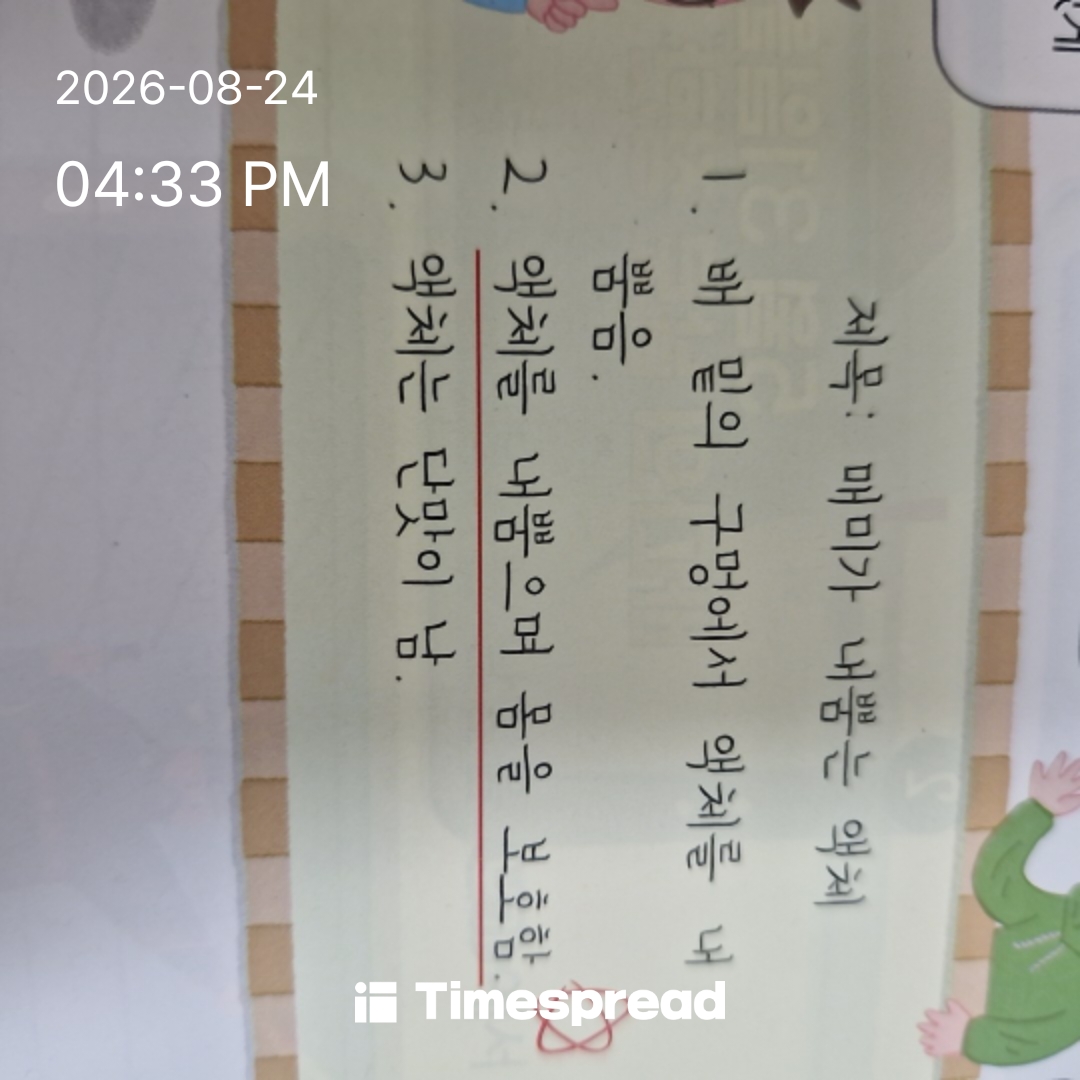 2026-08-24
04:33 PM
제목: 매미가 내뿜는 액체
1. 배 밑의 구멍에서 액체를 내
뿜음.
2. 액체를 내뿜으며 몸을 보호함.
3. 액체는 단맛이 남.
Timespread